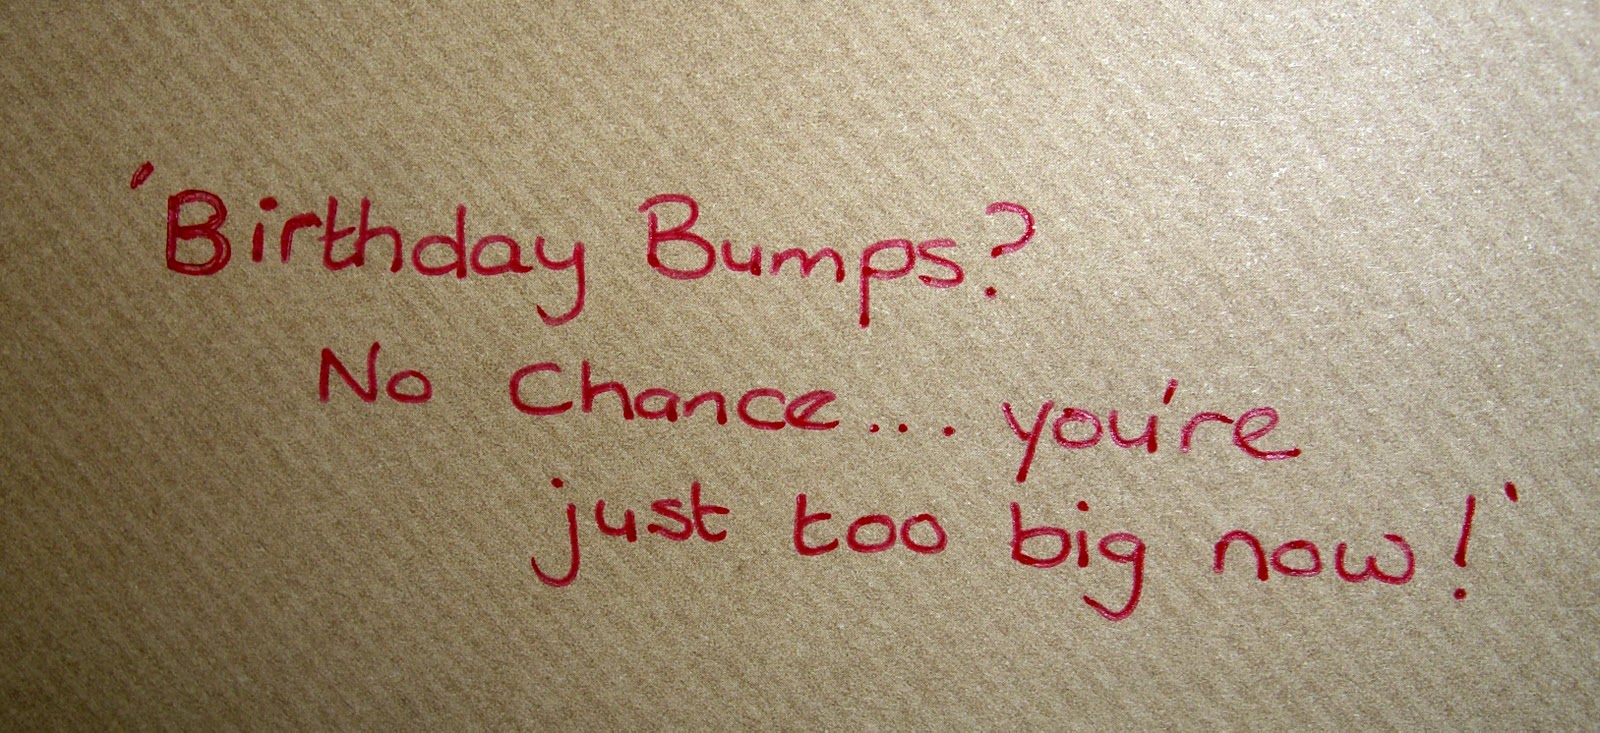 'Birthday Bumps?
No Chance... you're
just too big now!'